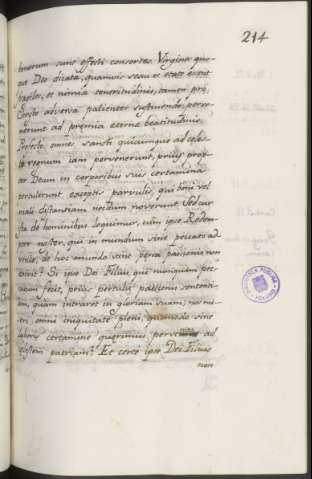 214
bonorum sunt effecti consortes. Virgines quo-
que Deo dicatæ, quamvis sexu et etate erant
fragiles, et nimia teneritudinis, tamen pro
Cristo adversa patienter sustinendo perve-
nerunt ad premia eterne beatitudinis.
Profecto omnes sancti quicumque ad celes-
te regnum iam pervenerunt, prius prop-
ter Deum in corporibus suis certamina
pertulerunt, exceptis parvulis, qui boni vel
mali distantiam necdum noverunt. Sed cur
ista de hominibus loquimur, cum ipse Redem-
ptor noster, qui in mundum sine peccato ad-
venit, de hoc mundo sine pena passionis non
exivit? Si ipse Dei Filius, qui nunquam pec-
catum fecit, prius pertulit passionis sententi-
am, quam intraret in gloriam suam, nos mi-
seri omni iniquitate pleni, quomodo sine
labore certamine querimus pervenire ad
celestem patriam? Et certe ipse Dei Filius
non